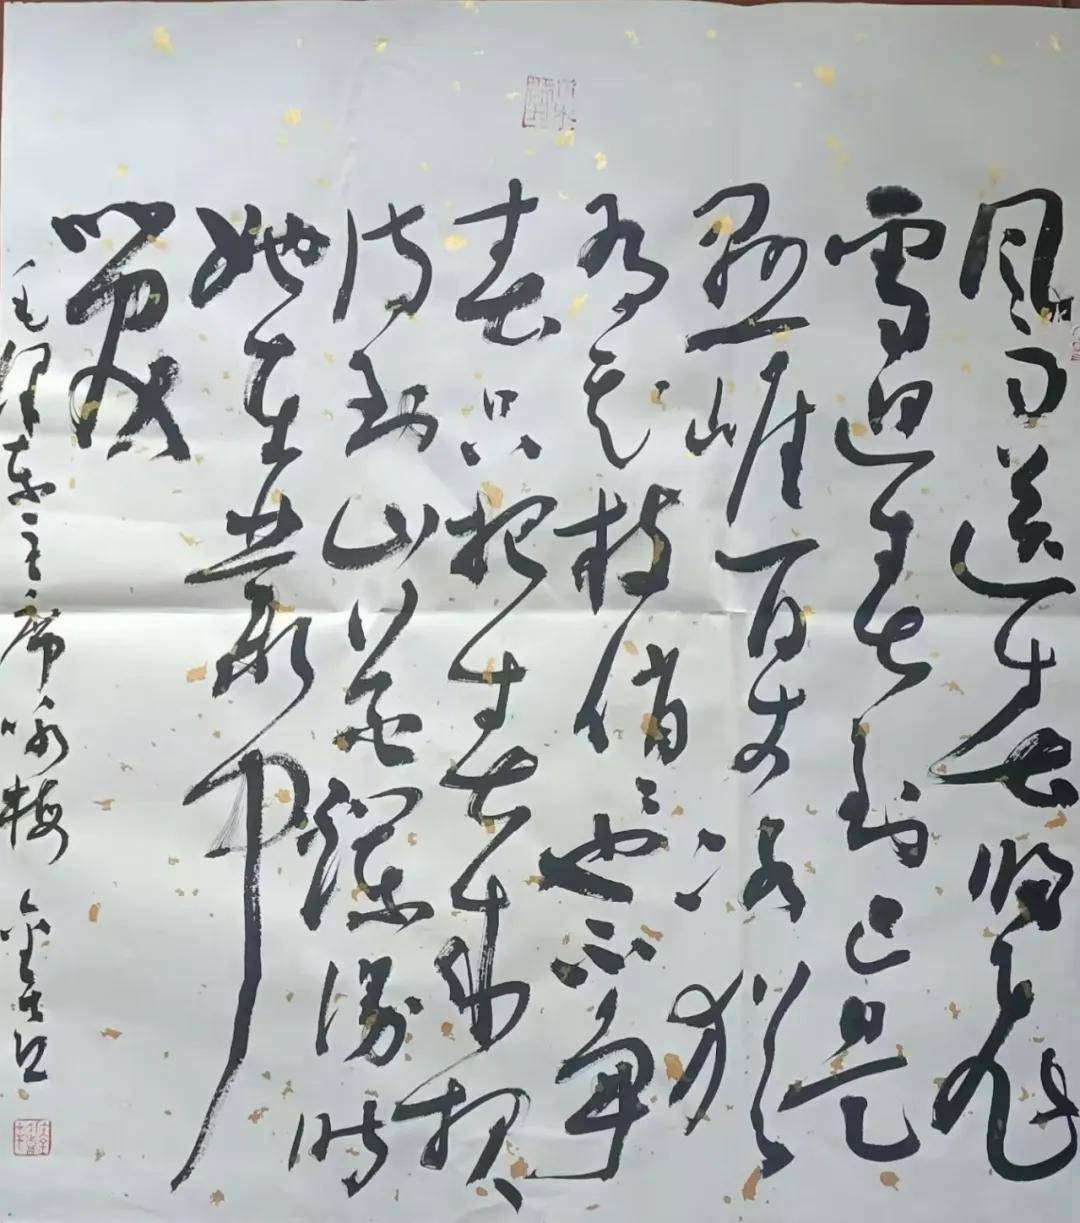 风雨送春归飞
雪迎春到已是
悬崖百丈冰犹
有花枝俏〻也不争
春只把春来报
待到山花烂漫时
她在丛中
笑
毛泽东主席咏梅